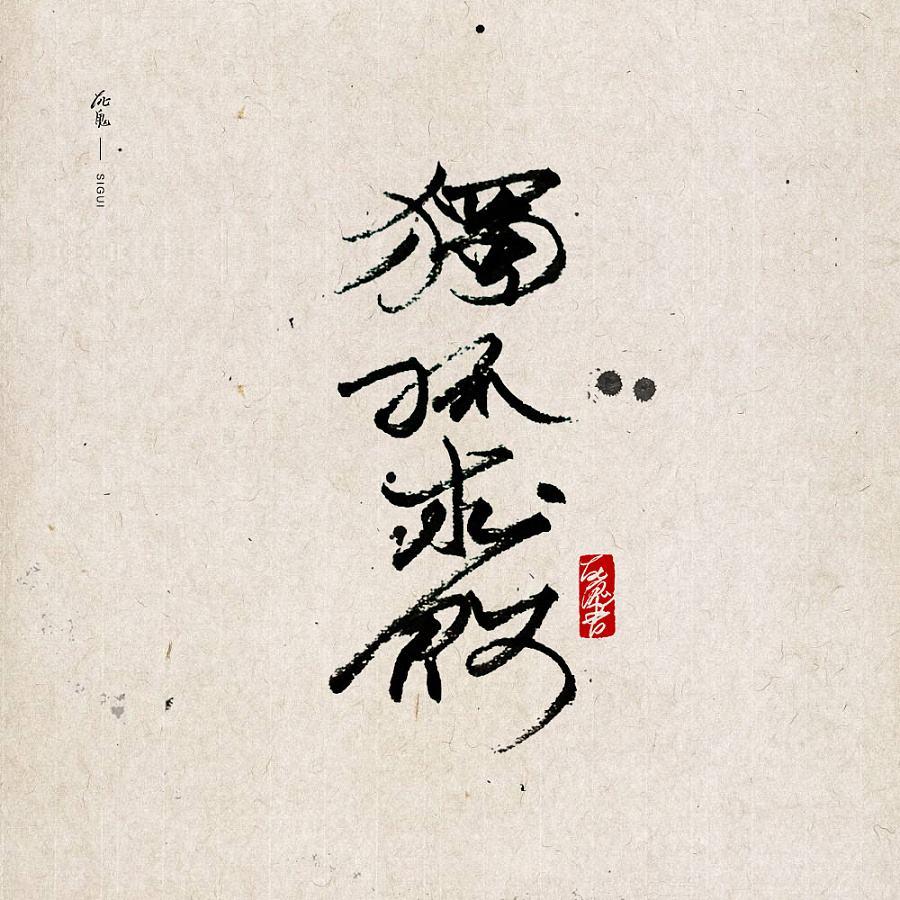 獨孤求敗
死鬼
SIGUI
死鬼書